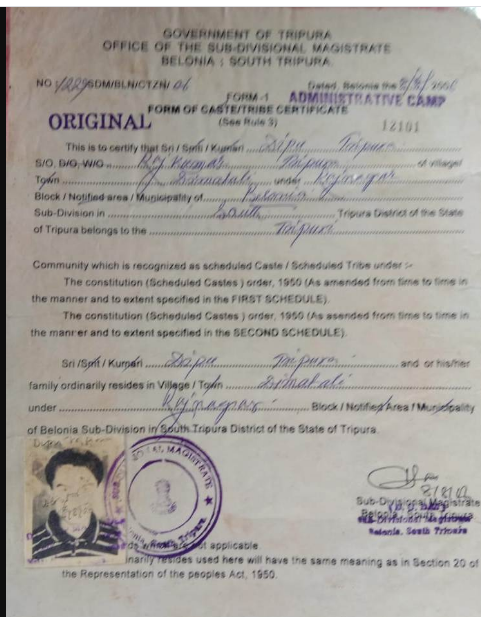 GOVERNMENT OF TRIPURA
OFFICE OF THE SUB-DIVISIONAL MAGISTRATE
BELONIA : SOUTH TRIPURA.
NO 1229/SDM/BLN/CTZN/ 06 Dated, Belonia the
FORM -1 ADMINISTRATIVE CAMP
FORM OF CASTE/TRIBE CERTIFICATE
ORIGINAL (See Rule 3) 12101
This is to certify that Sri / Smti / Kumari Dipu Tripura
S/O, D/O, W/O Kumar Tripura of village/
Town under Rajnagar
Block / Notified area / Municipality of Belonia
Sub-Division in South Tripura District of the State
of Tripura belongs to the Tripuri
Community which is recognized as scheduled Caste / Scheduled Tribe under :-
The constitution (Scheduled Castes ) order, 1950 (As amended from time to time in
the manner and to extent specified in the FIRST SCHEDULE).
The constitution (Scheduled Castes ) order, 1950 (As asended from time to time in
the manner and to extent specified in the SECOND SCHEDULE).
Sri /Smti / Kumari Dipu Tripura and or his/her
family ordinarily resides in Village / Town
under Rajnagar Block / Notified Area / Municipality
of Belonia Sub-Division in South Tripura District of the State of Tripura.
MAGISTRATE
South Tripura
Sub-Divisional Magistrate
Belonia, South Tripura
Sub-Divisional Magistrate
Belonia, South Tripura
which are not applicable
resides used here will have the same meaning as in Section 20 of
the Representation of the peoples Act, 1950.